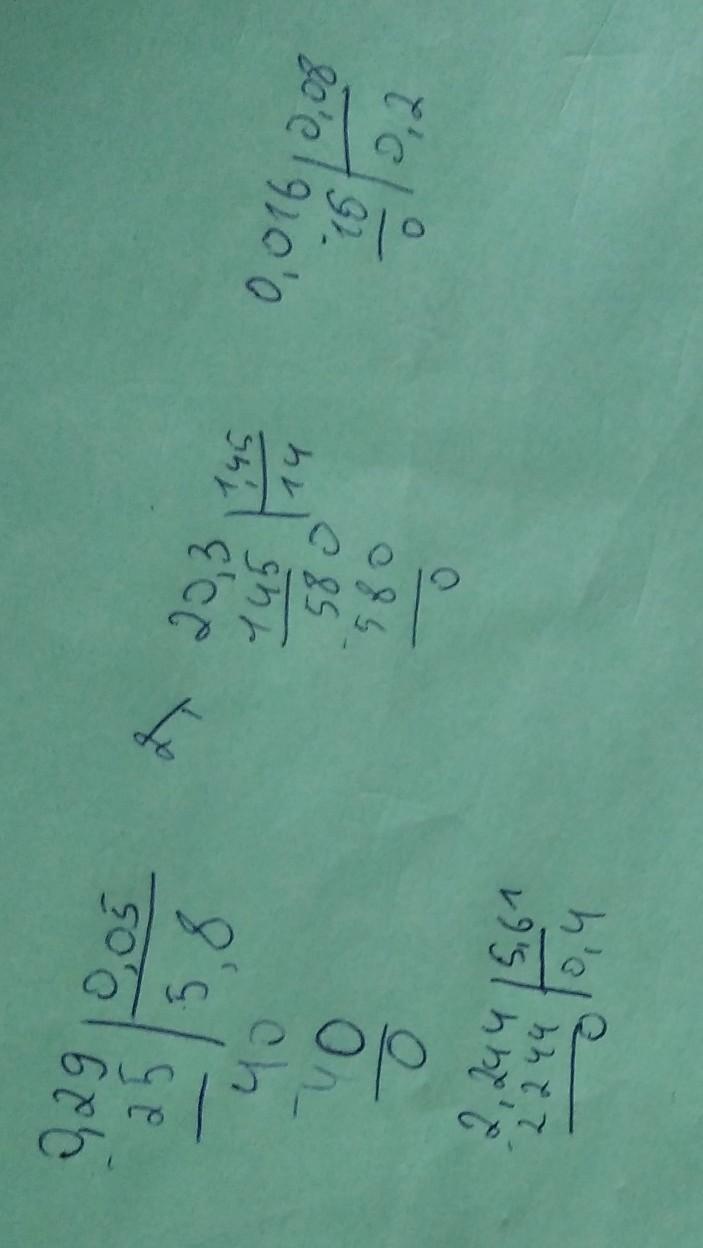 0,29 | 0,05
25 | 5,8
40
-40
0
2,244 | 5,61
2244 | 0,4
0
20,3 | 1,45
145 | 14
580
-580
0
0,016 | 0,08
-16 | 0,2
0